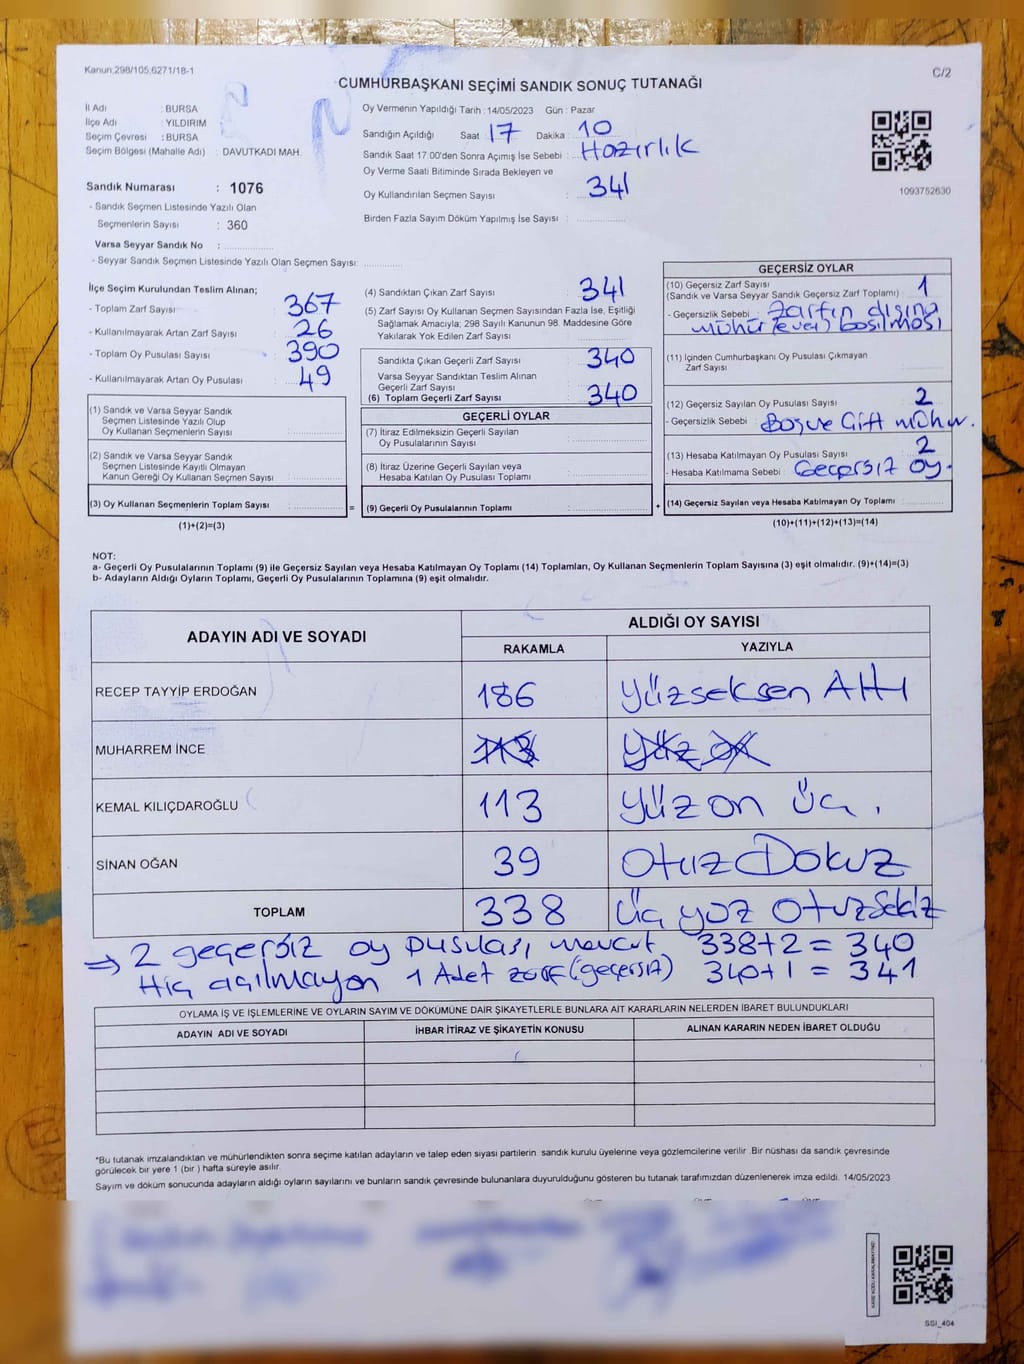 Kanun,298/105,6271/18-1
C/2
CUMHURBAŞKANI SEÇİMİ SANDIK SONUÇ TUTANAĞI
İl Adı : BURSA
İlçe Adı : YILDIRIM
Seçim Çevresi : BURSA
Seçim Bölgesi (Mahalle Adı) : DAVUTKADI MAH.
Oy Vermenin Yapıldığı Tarih : 14/05/2023 Gün : Pazar
Sandığın Açıldığı Saat : 17 Dakika : 10
Sandık Saat 17:00'den Sonra Açımış İse Sebebi : Hazırlık
Oy Verme Saati Bitiminde Sırada Bekleyen ve
Oy Kullandırılan Seçmen Sayısı : 341
Birden Fazla Sayım Döküm Yapılmış İse Sayısı :
1093752630
Sandık Numarası : 1076
- Sandık Seçmen Listesinde Yazılı Olan
Seçmenlerin Sayısı : 360
Varsa Seyyar Sandık No :
- Seyyar Sandık Seçmen Listesinde Yazılı Olan Seçmen Sayısı:
İlçe Seçim Kurulundan Teslim Alınan;
- Toplam Zarf Sayısı : 367
- Kullanılmayarak Artan Zarf Sayısı : 26
- Toplam Oy Pusulası Sayısı : 390
- Kullanılmayarak Artan Oy Pusulası : 49
(1) Sandık ve Varsa Seyyar Sandık
Seçmen Listesinde Yazılı Olup
Oy Kullanan Seçmenlerin Sayısı :
(2) Sandık ve Varsa Seyyar Sandık
Seçmen Listesinde Kayıtlı Olmayan
Kanun Gereği Oy Kullanan Seçmen Sayısı :
(3) Oy Kullanan Seçmenlerin Toplam Sayısı :
(1)+(2)=(3)
(4) Sandıktan Çıkan Zarf Sayısı : 341
(5) Zarf Sayısı Oy Kullanan Seçmen Sayısından Fazla İse, Eşitliği
Sağlamak Amacıyla; 298 Sayılı Kanunun 98. Maddesine Göre
Yakılarak Yok Edilen Zarf Sayısı :
Sandıkta Çıkan Geçerli Zarf Sayısı : 340
Varsa Seyyar Sandıktan Teslim Alınan
Geçerli Zarf Sayısı :
(6) Toplam Geçerli Zarf Sayısı : 340
GEÇERLİ OYLAR
(7) İtiraz Edilmeksizin Geçerli Sayılan
Oy Pusulalarının Sayısı :
(8) İtiraz Üzerine Geçerli Sayılan veya
Hesaba Katılan Oy Pusulası Toplamı :
= (9) Geçerli Oy Pusulalarının Toplamı :
GEÇERSİZ OYLAR
(10) Geçersiz Zarf Sayısı
(Sandık ve Varsa Seyyar Sandık Geçersiz Zarf Toplamı) : 1
- Geçersizlik Sebebi : zarfın dışına
mühür (evet) basılması
(11) İçinden Cumhurbaşkanı Oy Pusulası Çıkmayan
Zarf Sayısı :
(12) Geçersiz Sayılan Oy Pusulası Sayısı : 2
- Geçersizlik Sebebi : Boş ve Çift mühür.
(13) Hesaba Katılmayan Oy Pusulası Sayısı : 2
- Hesaba Katılmama Sebebi : Geçersiz oy.
+ (14) Geçersiz Sayılan veya Hesaba Katılmayan Oy Toplamı :
(10)+(11)+(12)+(13)=(14)
NOT:
a- Geçerli Oy Pusulalarının Toplamı (9) ile Geçersiz Sayılan veya Hesaba Katılmayan Oy Toplamı (14) Toplamları, Oy Kullanan Seçmenlerin Toplam Sayısına (3) eşit olmalıdır. (9)+(14)=(3)
b- Adayların Aldığı Oyların Toplamı, Geçerli Oy Pusulalarının Toplamına (9) eşit olmalıdır.
ADAYIN ADI VE SOYADI
ALDIĞI OY SAYISI
RAKAMLA YAZIYLA
RECEP TAYYİP ERDOĞAN 186 Yüzseksen Altı
MUHARREM İNCE 113 Yüz on
KEMAL KILIÇDAROĞLU 113 Yüz on üç.
SİNAN OĞAN 39 Otuz Dokuz
TOPLAM 338 Üç yüz otuz Sekiz
⇒ 2 geçersiz oy pusulası mevcut 338+2 = 340
Hiç açılmayan 1 Adet zarf (geçersiz) 340+1 = 341
OYLAMA İŞ VE İŞLEMLERİNE VE OYLARIN SAYIM VE DÖKÜMÜNE DAİR ŞİKAYETLERLE BUNLARA AİT KARARLARIN NELERDEN İBARET BULUNDUKLARI
ADAYIN ADI VE SOYADI İHBAR İTİRAZ VE ŞİKAYETİN KONUSU ALINAN KARARIN NEDEN İBARET OLDUĞU
*Bu tutanak imzalandıktan ve mühürlendikten sonra seçime katılan adayların ve talep eden siyasi partilerin sandık kurulu üyelerine veya gözlemcilerine verilir .Bir nüshası da sandık çevresinde
görülecek bir yere 1 (bir ) hafta süreyle asılır.
Sayım ve döküm sonucunda adayların aldığı oyların sayılarını ve bunların sandık çevresinde bulunanlara duyurulduğunu gösteren bu tutanak tarafımızdan düzenlenerek imza edildi. 14/05/2023
SSI_404